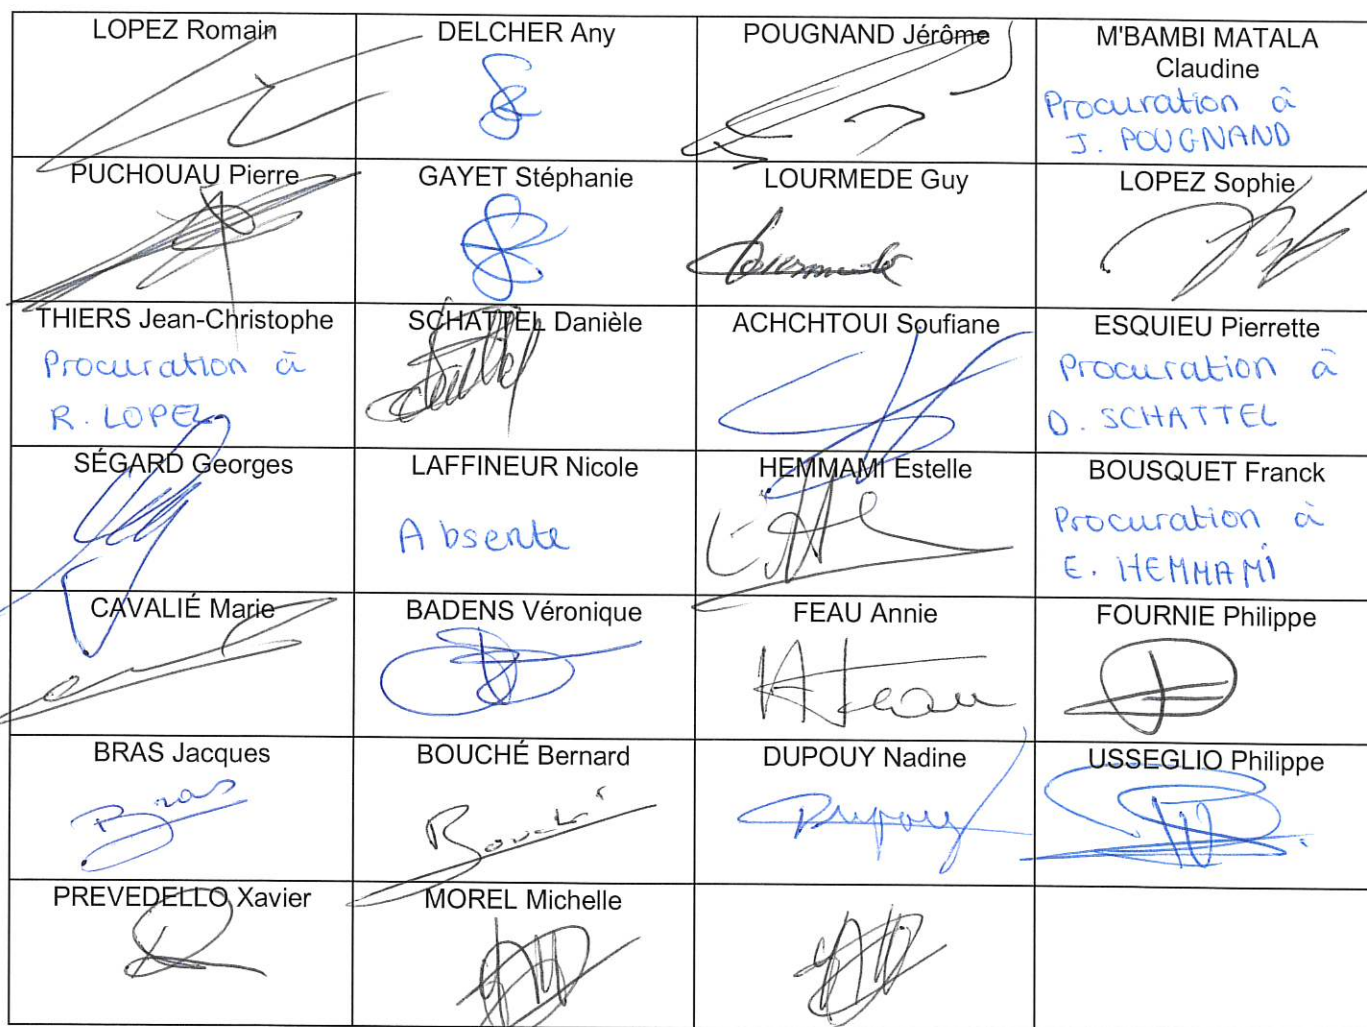 LOPEZ Romain
DELCHER Any
POUGNAND Jérôme
M'BAMBI MATALA
Claudine
Procuration à
J. POUGNAND
PUCHOUAU Pierre
GAYET Stéphanie
LOURMEDE Guy
Lourmede
LOPEZ Sophie
THIERS Jean-Christophe
Procuration à
R. LOPEZ
SCHATTEL Danièle
ACHCHTOUI Soufiane
ESQUIEU Pierrette
Procuration à
D. SCHATTEL
SÉGARD Georges
LAFFINEUR Nicole
Absente
HEMMAMI Estelle
BOUSQUET Franck
Procuration à
E. HEMMAMI
CAVALIÉ Marie
BADENS Véronique
FEAU Annie
A Feau
FOURNIE Philippe
BRAS Jacques
Bras
BOUCHÉ Bernard
Bouché
DUPOUY Nadine
Dupouy
USSEGLIO Philippe
PREVEDELLO Xavier
MOREL Michelle